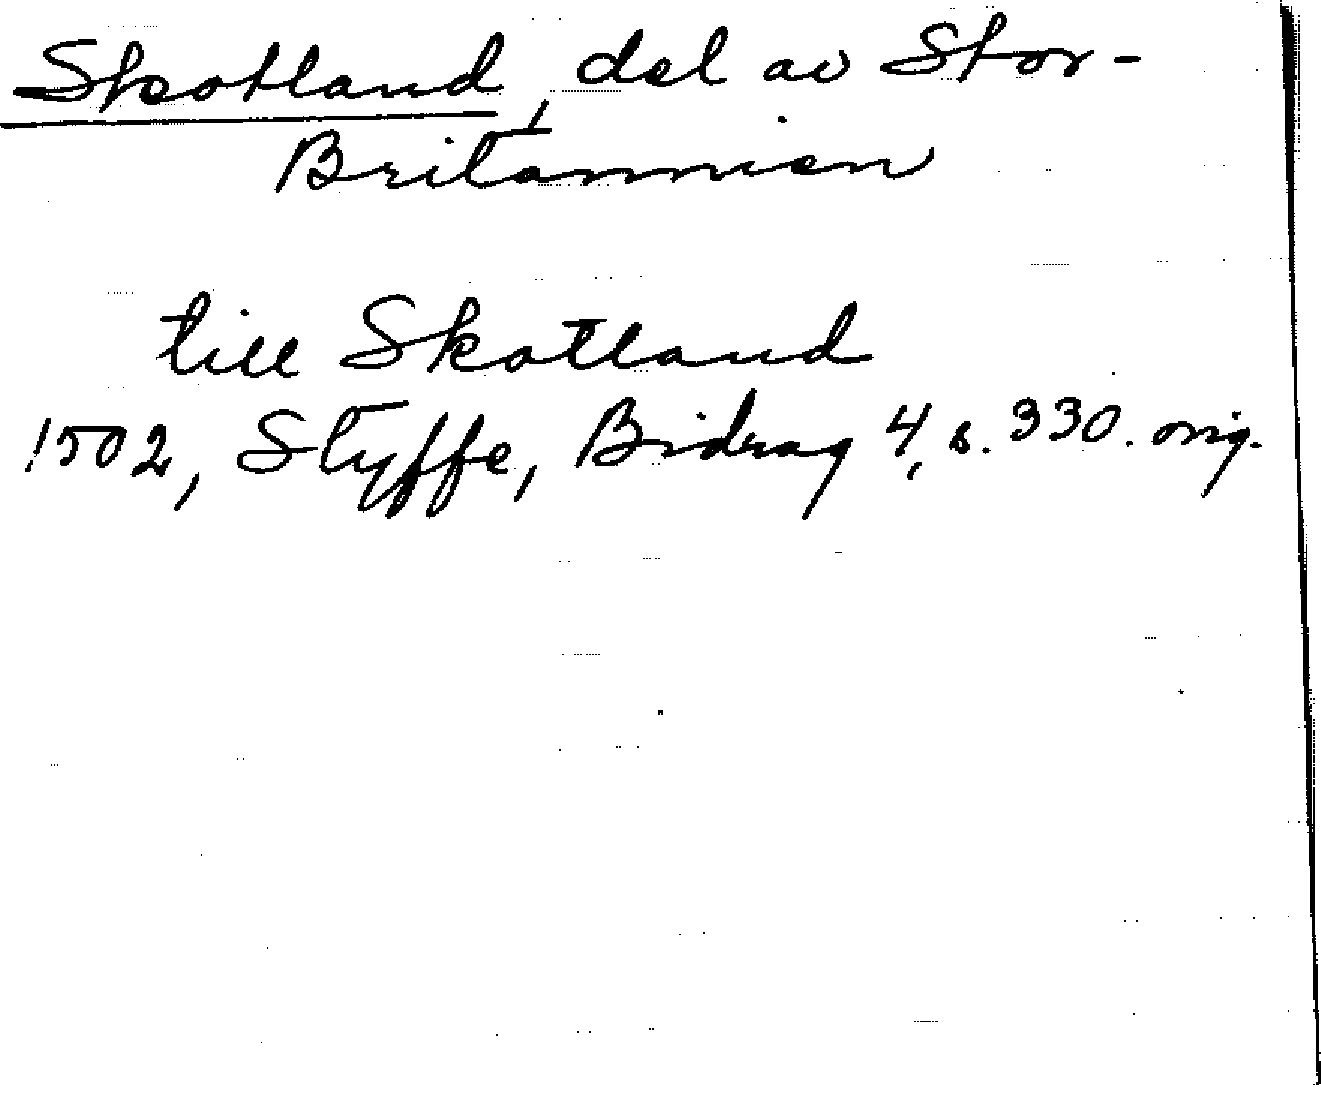 Skotland, del av Stor-
Britannien
till Skotland
1502, Styffe, Bidrag 4, s. 330. orig.